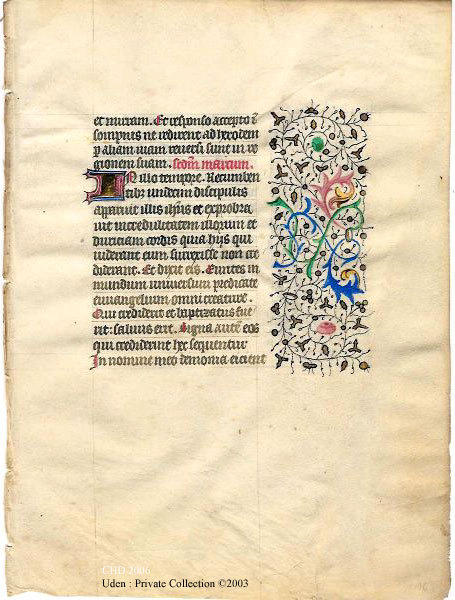 et mirram. Et responso accepto ī
sompnis ne redirent ad herodem
p aliam viam reversi sunt in re
gionem suam. Scdm marcum.
In illo tempore. Recumben
tibz undecim discipulis
apparuit illis ihus et exprobra
vit incredulitatem illorum et
duriciam cordis quia hijs qui
viderant eum surrexisse non cre
diderant. Et dixit eis. Euntes in
mundum universum predicate
euuangelium omni creature.
Qui crediderit et baptizatus fue
rit: salvus erit. Signa autē eos
qui crediderint hec sequentur
In nomine meo demonia eicient
CHD 1006
Uden : Private Collection ©2003
16